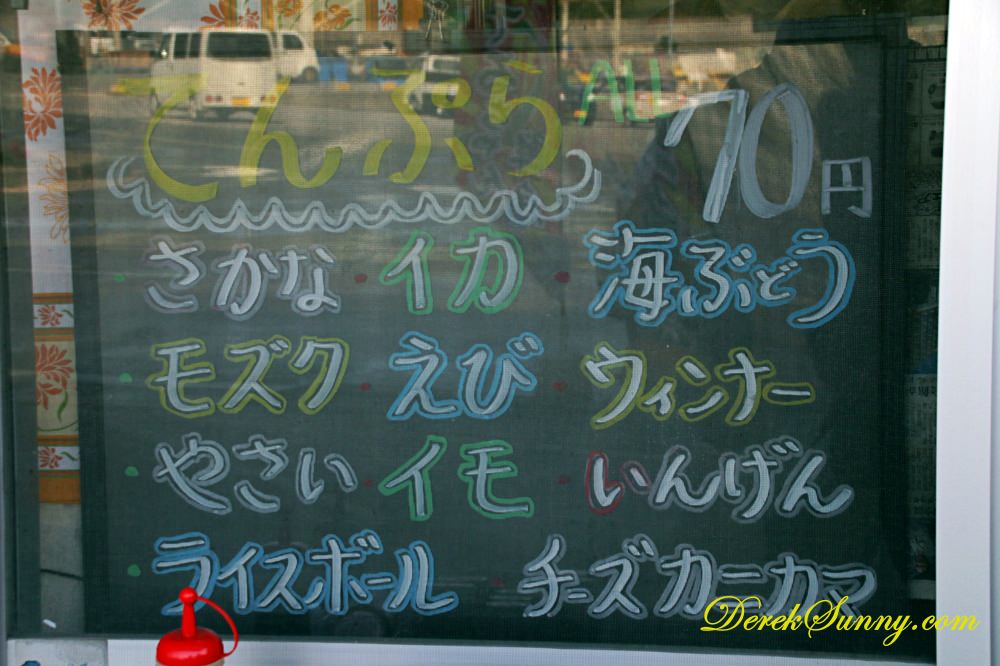 てんぷら ALL 70円
・さかな・イカ・海ぶどう
・モズク・えび・ウィンナー
・やさい・イモ・いんげん
・ライスボール・チーズカーカマ
DerekSunny.com